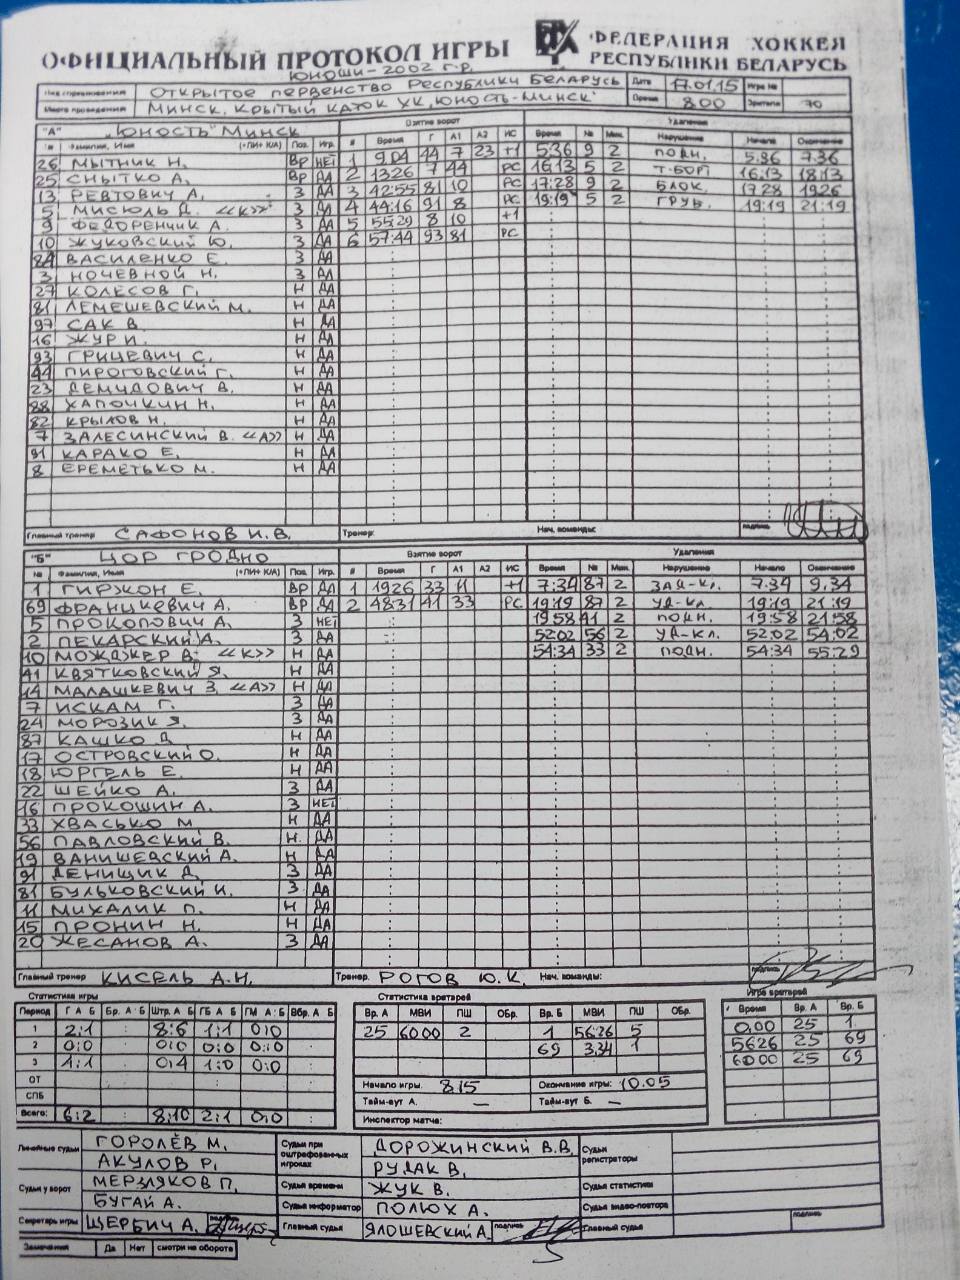 ОФИЦИАЛЬНЫЙ ПРОТОКОЛ ИГРЫ ФЕДЕРАЦИЯ ХОККЕЯ РЕСПУБЛИКИ БЕЛАРУСЬ
ЮНОШИ - 2002 г.р.
Вид соревнования ОТКРЫТОЕ ПЕРВЕНСТВО РЕСПУБЛИКИ БЕЛАРУСЬ Дата 17.01.15 Игра №
Место проведения МИНСК. КРЫТЫЙ КАТОК ХК „ЮНОСТЬ-МИНСК" Время 8.00 Зрители 70
"А" „ЮНОСТЬ" МИНСК Взятие ворот Удаления
№ Фамилия, Имя (+ПИ+ К/А) Поз. Игр. # Время Г А1 А2 ИС Время № Мин. Нарушение Начало Окончание
26 МЫТНИК Н. ВР НЕТ 1 9.04 44 7 23 +1 5:36 9 2 ПОДН. 5.36 7.36
25 СНЫТКО А. ВР ДА 2 13:26 7 44 РС 16:13 5 2 Т-БОРТ 16:13 18:13
13 РЕВТОВИЧ А. З ДА 3 42:55 81 10 РС 17:28 9 2 БЛОК. 17:28 19:26
5 МИСЮЛЬ Д. «К» З ДА 4 44:16 91 8 РС 19:19 5 2 ГРУБ. 19:19 21:19
9 ФЕДОРЕНЧИК А. З ДА 5 55:29 8 10 +1
10 ЖУКОВСКИЙ Ю. З ДА 6 57:44 93 81 РС
84 ВАСИЛЕНКО Е. З ДА
3 НОЧЕВНОЙ Н. З ДА
27 КОЛЕСОВ Г. Н ДА
81 ЛЕМЕШЕВСКИЙ М. Н ДА
97 САК В. Н ДА
16 ЖУР И. Н ДА
93 ГРИЦЕВИЧ С. Н ДА
44 ПИРОГОВСКИЙ Г. Н ДА
23 ДЕМИДОВИЧ В. Н ДА
88 ХАПОЧКИН Н. Н ДА
82 КРЫЛОВ Н. Н ДА
7 ЗАЛЕСИНСКИЙ В. «А» Н ДА
91 КАРАКО Е. Н ДА
8 ЕРЕМЕТЬКО М. Н ДА
Главный тренер САФОНОВ И.В. Тренер: Нач. команды: подпись
"Б" ЦОР ГРОДНО Взятие ворот Удаления
№ Фамилия, Имя (+ПИ+ К/А) Поз. Игр. # Время Г А1 А2 ИС Время № Мин. Нарушение Начало Окончание
1 ГИРЖОН Е. ВР ДА 1 19:26 33 11 +1 7:34 87 2 ЗАД-КЛ. 7.34 9.34
69 ФРАНЦКЕВИЧ А. ВР ДА 2 48:31 41 33 РС 19:19 87 2 УД-КЛ. 19:19 21:19
5 ПРОКОПОВИЧ А. З НЕТ 19:58 41 2 ПОДН. 19:58 21:58
2 ПЕКАРСКИЙ А. З ДА 52:02 56 2 УД-КЛ. 52:02 54:02
10 МОЖДЖЕР В. «К» Н ДА 54:34 33 2 ПОДН. 54:34 55:29
41 КВЯТКОВСКИЙ Я. Н ДА
14 МАЛАШКЕВИЧ З. «А» Н ДА
7 ИСКАМ Г. З ДА
24 МОРОЗИК Я. З ДА
87 КАШКО Д. Н ДА
17 ОСТРОВСКИЙ О. Н ДА
18 ЮРГЕЛЬ Е. Н ДА
22 ШЕЙКО А. З ДА
16 ПРОКОШИН А. З НЕТ
33 ХВАСЬКО М. Н ДА
56 ПАВЛОВСКИЙ В. Н. ДА
19 ВАНИШЕВСКИЙ А. Н ДА
91 ДЕНИЩИК Д. З ДА
81 БУЛЬКОВСКИЙ И. З ДА
11 МИХАЛИК П. Н ДА
15 ПРОНИН Н. Н ДА
20 ЖЕСАНОВ А. З ДА
Главный тренер КИСЕЛЬ А.Н. Тренер. РОГОВ Ю.К. Нач. команды: подпись
Статистика игры Статистика вратарей Игра вратарей
Период Г А Б Бр. А Б Штр. А Б ГБ А Б ГМ А Б Вбр. А Б Вр. А МВИ ПШ ОБр. Вр. Б МВИ ПШ ОБр. Время Вр. А Вр. Б
1 2:1 8:6 1:1 0:0 25 60:00 2 1 56:26 5 0,00 25 1.
2 0:0 0:0 0:0 0:0 69 3.34 1 56:26 25 69
3 4:1 0:4 1:0 0:0 60:00 25 69
ОТ Начало игры. 8.15 Окончание игры: 10.05
СПБ Тайм-аут А. — Тайм-аут Б. —
Всего: 6:2 8:10 2:1 0:0 Инспектор матча:
Линейные судьи ГОРОЛЁВ М. Судьи при оштрафованных игроках ДОРОЖИНСКИЙ В.В. Судьи регистраторы
АКУЛОВ Р. РУДАК В.
Судьи у ворот МЕРЗЛЯКОВ П. Судья времени ЖУК В. Судья статистики
БУГАЙ А. Судья информатор ПОЛЮХ А. Судья видео-повтора
Секретарь игры ЩЕРБИЧ А. подпись Главный судья ЯЛОШЕВСКИЙ А. подпись Главный судья подпись
Замечания Да Нет смотри на обороте